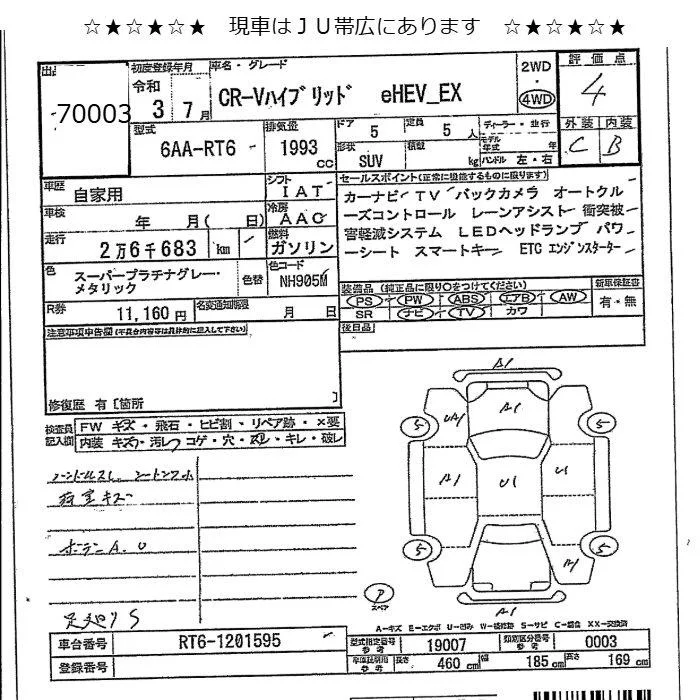 ☆★☆★☆★ 現車はＪＵ帯広にあります ☆★☆★☆★
70003
初度登録年月
令和
3年 7月
車名・グレード
CR-Vハイブリッド eHEV_EX
2WD
・
4WD
評価点
4
外装 内装
C B
型式
6AA-RT6
排気量
1993
cc
ドア
5
定員
5 人
形状
SUV
積載
kg
ディーラー・並行
モデル年式 年
ハンドル 左・右
車歴
自家用
シフト
IAT
車検
年 月( 日)
冷房
AAC
走行
2万6千683 km
燃料
ガソリン
色
スーパープラチナグレー・メタリック
色替
色コード
NH905M
R券
11,160円
名変通知期限
月 日
セールスポイント(正常に機能するものに限ります)
カーナビ TV バックカメラ オートクル
ーズコントロール レーンアシスト 衝突被
害軽減システム LEDヘッドランプ パワ
ーシート スマートキー ETC エンジンスターター
装備品 (純正品に限り○をつけてください)
PS PW ABS エアB AW
SR ナビ TV カワ
新車保証書
有・無
後日品
注意事項申告欄(不具合内容等は具体的に記入して下さい)
修復歴 有 [箇所 ]
検査員記入欄
FW キズ・飛石・ヒビ割・リペア跡・×要
内装 キズ・汚レ コゲ・穴・スレ・キレ・破レ
荷室キズ
ボデーA.U
足廻りS
A1
A1
UA1
A1
U1
U
A1
A1
5
5
5
5
P
スペア
A-キズ E-エクボ U-凹み W-補修跡 S-サビ C-腐食 XX-交換済
車台番号
RT6-1201595
登録番号
型式指定番号
参考
19007
類別区分番号
参考
0003
車体寸法
参考
長さ 460 cm
幅 185 cm
高さ 169 cm